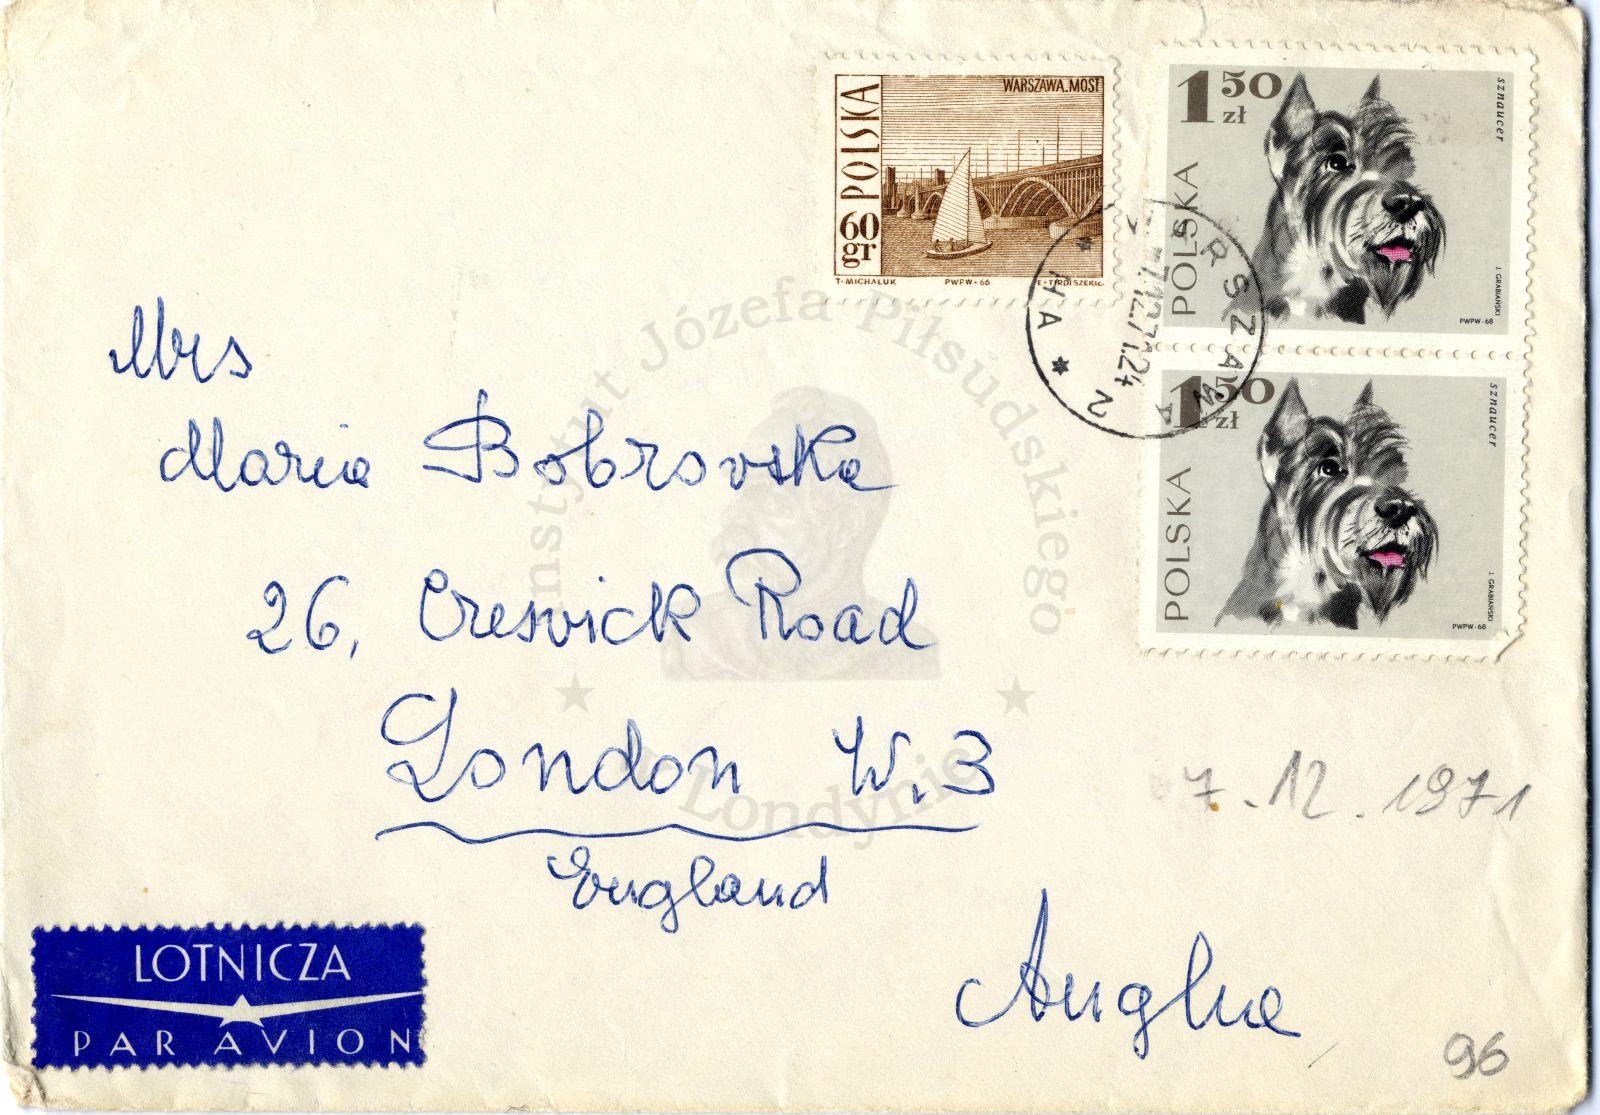 WARSZAWA.MOST
POLSKA
60
gr
T·MICHALUK PWPW·66
1 50
zł
sznaucer
POLSKA
J. GRABIAŃSKI
PWPW-68
1 50
zł
sznaucer
POLSKA
J. GRABIAŃSKI
PWPW-68
WARSZAWA 2
* HA *
Instytut Józefa Piłsudskiego
w Londynie
Mrs
Maria Bobrovska
26, Creswick Road
London W.3
England
Anglia
7.12.1971
96
LOTNICZA
PAR AVION